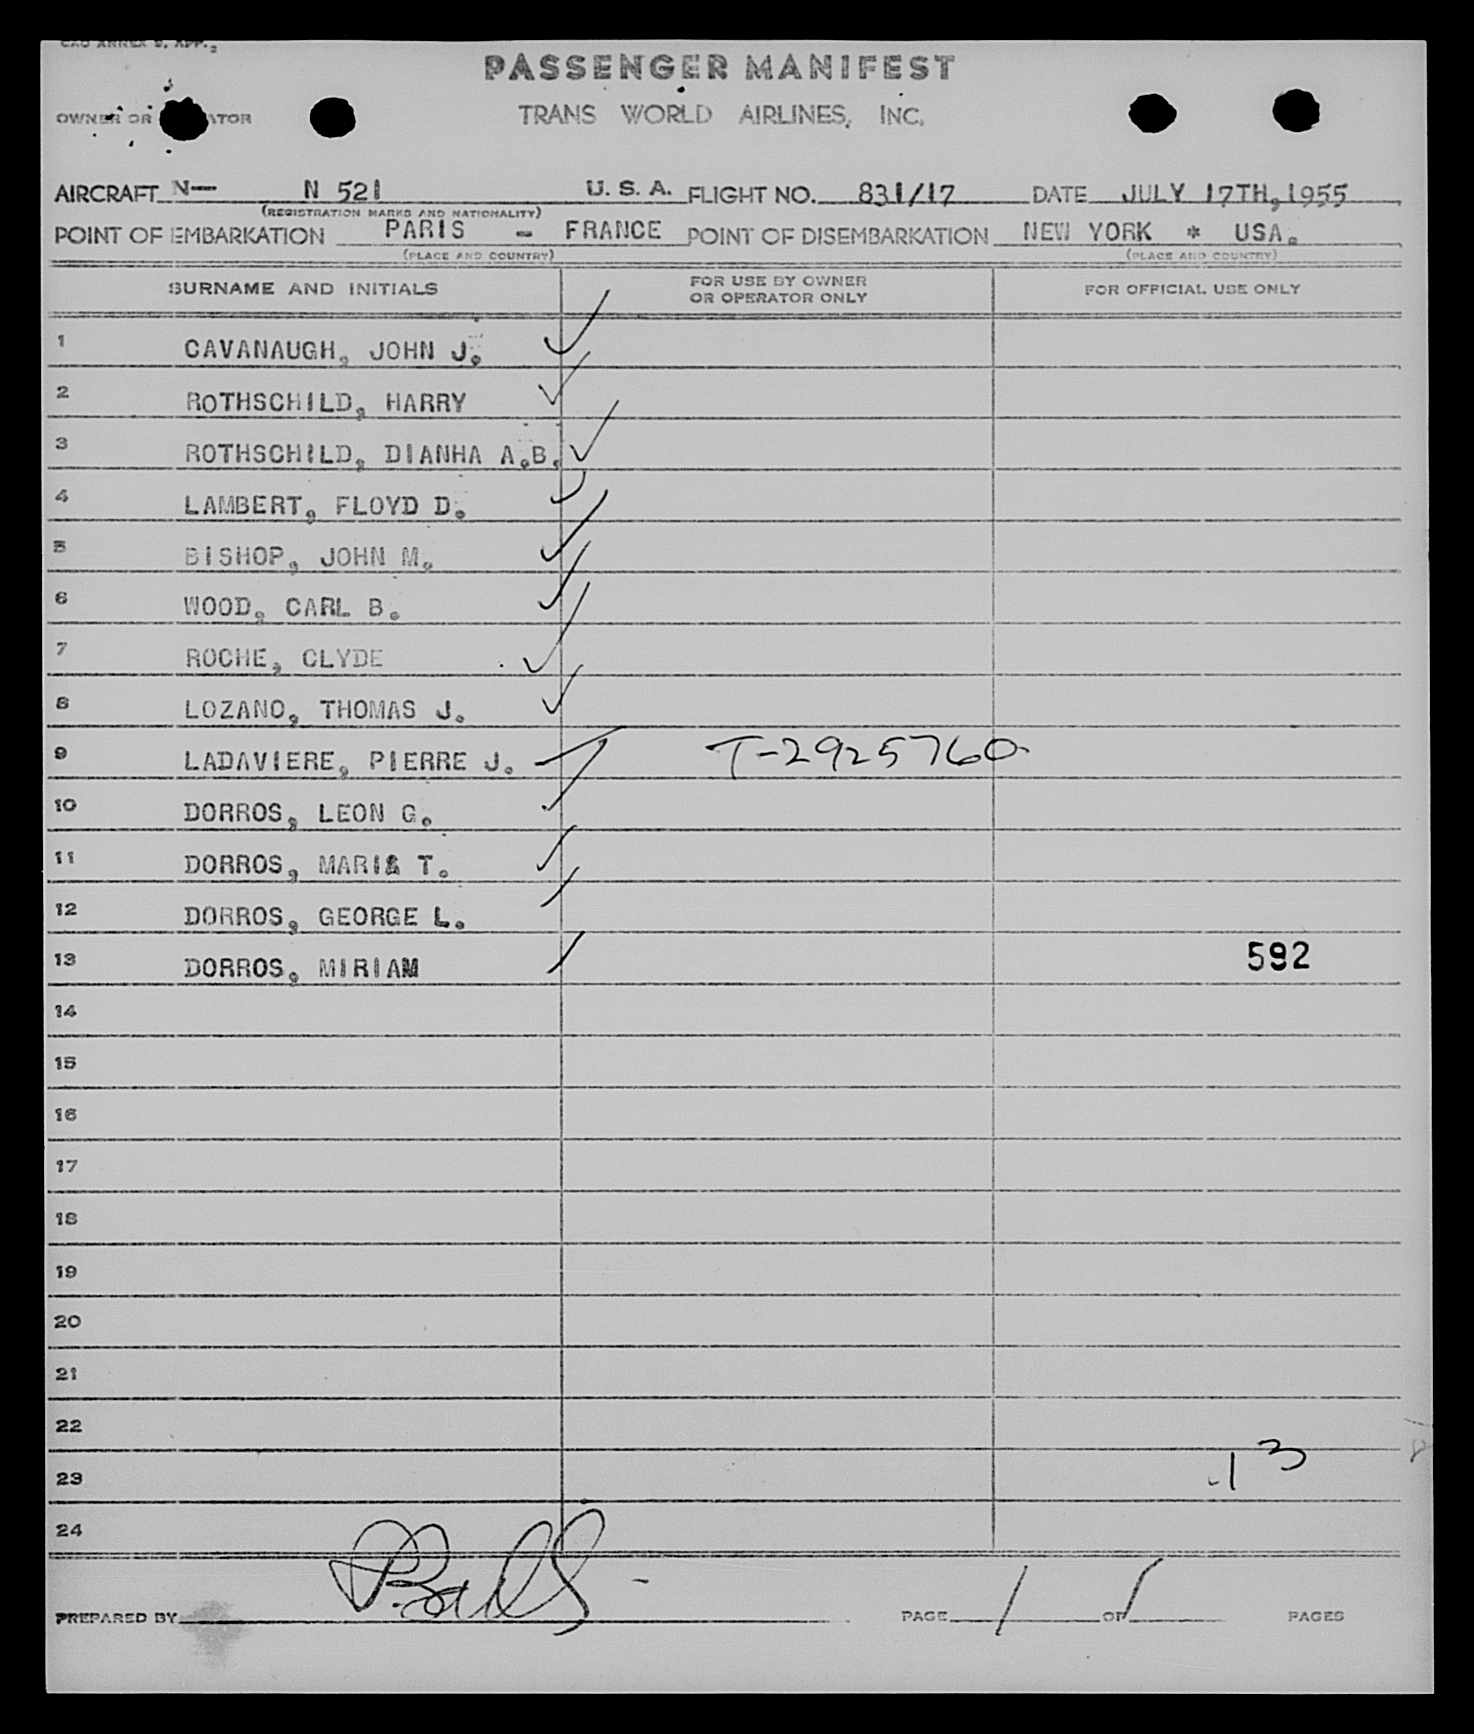 PASSENGER MANIFEST
OWNER OR
TRANS WORLD AIRLINES, INC.
AIRCRAFT N— N 521 U. S. A. FLIGHT NO. 831/17 DATE JULY 17TH, 1955
(REGISTRATION MARKS AND NATIONALITY)
POINT OF EMBARKATION PARIS - FRANCE POINT OF DISEMBARKATION NEW YORK * USA.
(PLACE AND COUNTRY) (PLACE AND COUNTRY)
SURNAME AND INITIALS FOR USE BY OWNER OR OPERATOR ONLY FOR OFFICIAL USE ONLY
1 CAVANAUGH, JOHN J.
2 ROTHSCHILD, HARRY
3 ROTHSCHILD, DIANHA A.B.
4 LAMBERT, FLOYD D.
5 BISHOP, JOHN M.
6 WOOD, CARL B.
7 ROCHE, CLYDE
8 LOZANO, THOMAS J.
9 LADAVIERE, PIERRE J. T-2925760
10 DORROS, LEON G.
11 DORROS, MARIA T.
12 DORROS, GEORGE L.
13 DORROS, MIRIAM 592
14
15
16
17
18
19
20
21
22
23 13
24
PREPARED BY PAGE 1 OF 1 PAGES